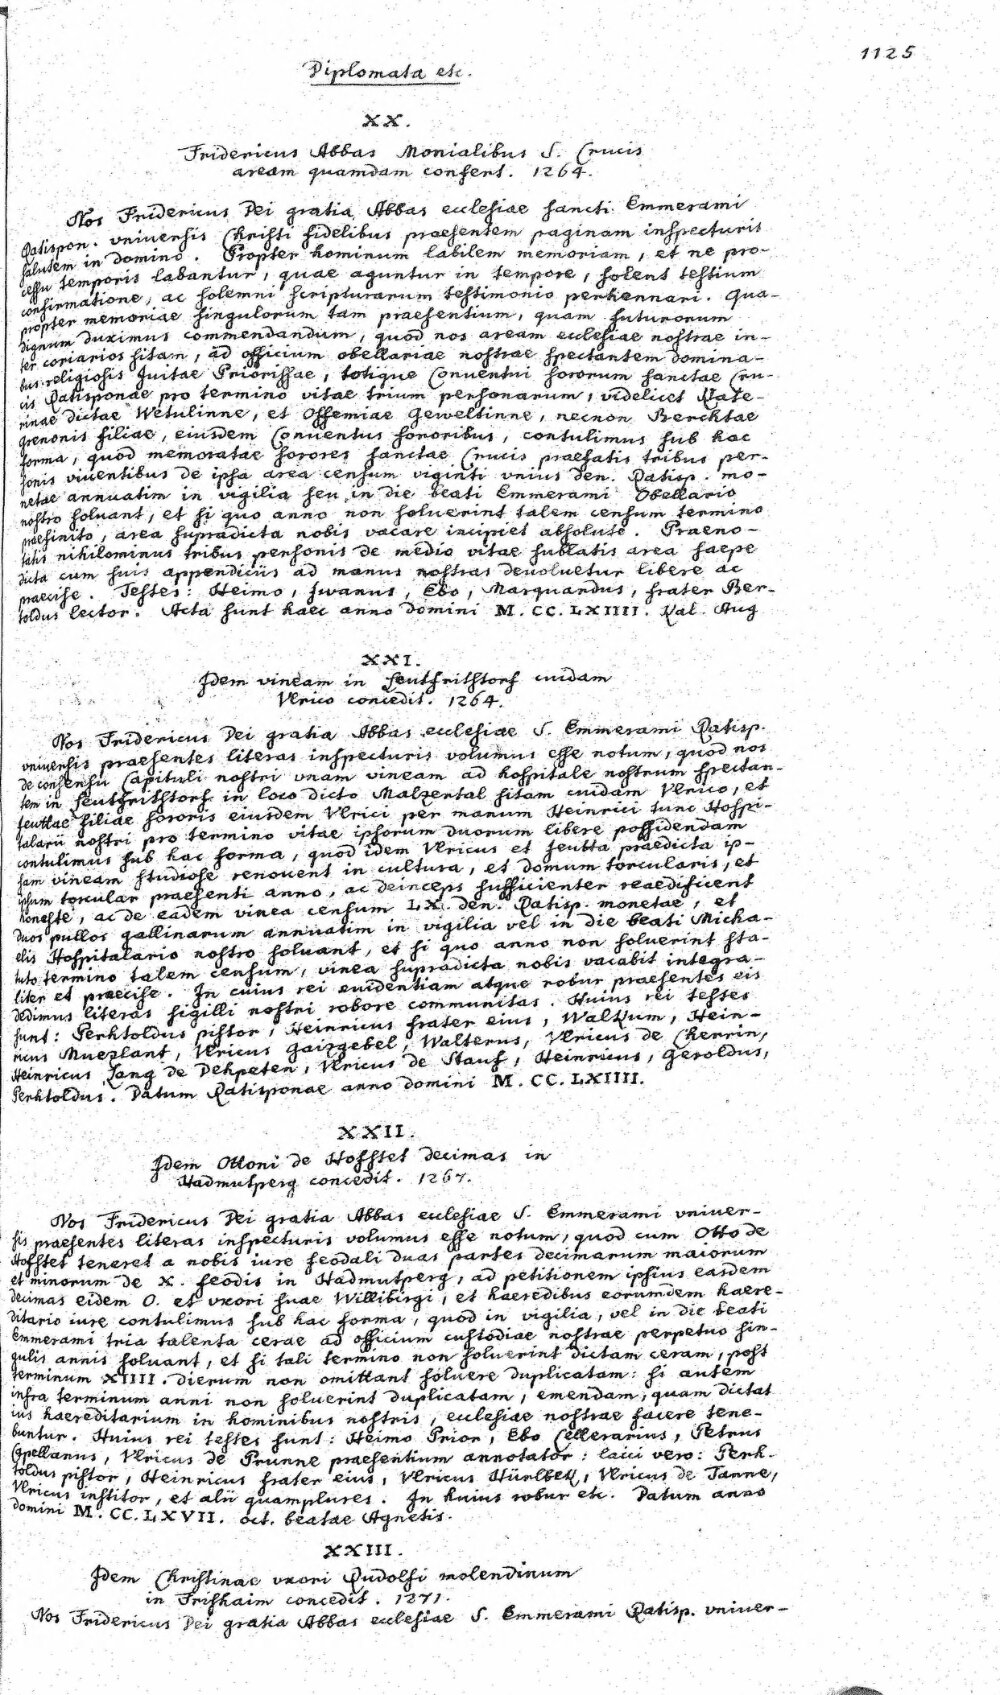 1125
Diplomata etc.
XX.
Fridericus Abbas Monialibus S. Crucis
aream quamdam confert. 1264.
Nos Fridericus Dei gratia Abbas ecclesiae sancti Emmerami
Ratispon. vniuersis Christi fidelibus praesentem paginam inspecturis
salutem in domino. Propter hominum labilem memoriam, et ne pro-
cessu temporis labantur, quae aguntur in tempore, solent testium
confirmatione, ac solemni scripturarum testimonio perhennari. Qua-
propter memoriae singulorum tam praesentium, quam futurorum
dignum duximus commendandum, quod nos aream ecclesiae nostrae in-
ter coriarios sitam, ad officium obellariae nostrae spectantem domina-
bus religiosis Juitae Priorissae, totique Conuentui sororum sanctae Cru-
cis Ratisponae pro termino vitae trium personarum, videlicet Kate-
rinae dictae Wetulinne, et Offemiae Geweltinne, necnon Berchtae
grenonis filiae, eiusdem Conuentus sororibus, contulimus sub hac
forma, quod memoratae sorores sanctae Crucis praefatis tribus per-
sonis viuentibus de ipsa area censum viginti vnius den. Ratisp. mo-
netae annuatim in vigilia seu in die beati Emmerami Obellario
nostro soluant, et si quo anno non soluerint talem censum termino
praefinito, area supradicta nobis vacare incipiet absolute. Praeno-
tatis nihilominus tribus personis de medio vitae sublatis area saepe
dicta cum suis appendiciis ad manus nostras deuoluetur libere ac
praecise. Testes: Heimo, Jwanus, Ebo, Marquandus, frater Ber-
toldus lector. Acta sunt haec anno domini M. CC. LXIIII. Kal. Aug
XXI.
Jdem vineam in Leutfrithstorf cuidam
Vlrico concedit. 1264.
Nos Fridericus Dei gratia Abbas ecclesiae S. Emmerami Ratisp.
vniuersis praesentes literas inspecturis volumus esse notum, quod nos
de consensu Capituli nostri vnam vineam ad hospitale nostrum spectan-
tem in Leutfrithstorf in loco dicto Malzental sitam cuidam Vlrico, et
filiae sororis eiusdem Vlrici per manum Heinrici tunc Hospi-
talarii nostri pro termino vitae ipsorum duorum libere possidendam
contulimus sub hac forma, quod idem Vlricus et praedicta ip-
sam vineam studiose renouent in cultura, et domum torcularis, et
ipsum torcular praesenti anno, ac deinceps sufficienter reaedificent
honeste, ac de eadem vinea censum LX. den. Ratisp. monetae, et
duos pullos gallinarum annuatim in vigilia vel in die beati Micha-
elis Hospitalario nostro soluant, et si quo anno non soluerint sta-
tuto termino talem censum, vinea supradicta nobis vacabit integra-
liter et praecise. In cuius rei euidentiam atque robur praesentes eis
dedimus literas sigilli nostri robore communitas. Huius rei testes
sunt: Perhtoldus pistor, Heinricus frater eius, Walkum, Hein-
ricus Muezlant, Vlricus Gaizgebel, Walterus, Vlricus de Cherrin,
Heinricus Lang de Dehpeten, Vlricus de Stauf, Heinricus, Geroldus,
Perhtoldus. Datum Ratisponae anno domini M. CC. LXIIII.
XXII.
Jdem Ottoni de Hofstet decimas in
Hadmutperg concedit. 1267.
Nos Fridericus Dei gratia Abbas ecclesiae S. Emmerami vniuer-
sis praesentes literas inspecturis volumus esse notum, quod cum Otto de
Hofstet teneret a nobis iure feodali duas partes decimarum maiorum
et minorum de X. feodis in Hadmutperg, ad petitionem ipsius easdem
decimas eidem O. et vxori suae Willibirgi, et haeredibus eorumdem haere-
ditario iure contulimus sub hac forma, quod in vigilia, vel in die beati
Emmerami tria talenta cerae ad officium custodiae nostrae perpetuo sin-
gulis annis soluant, et si tali termino non soluerint dictam ceram, post
terminum XIIII. dierum non omittant soluere duplicatam: si autem
infra terminum anni non soluerint duplicatam, emendam, quam dictat
ius haereditarium in hominibus nostris, ecclesiae nostrae facere tene-
buntur. Huius rei testes sunt: Heimo Prior, Ebo Cellerarius, Petrus
Capellanus, Vlricus de Prunne praesentium annotator: laici vero: Perh-
toldus pistor, Heinricus frater eius, Vlricus Hürlbek, Vlricus de Tanne,
Vlricus institor, et alii quamplures. In huius robur etc. Datum anno
domini M. CC. LXVII. oct. beatae Agnetis.
XXIII.
Jdem Christinae vxori Rudolfi molendinum
in Friskaim concedit. 1271.
Nos Fridericus Dei gratia Abbas ecclesiae S. Emmerami Ratisp. vniuer-